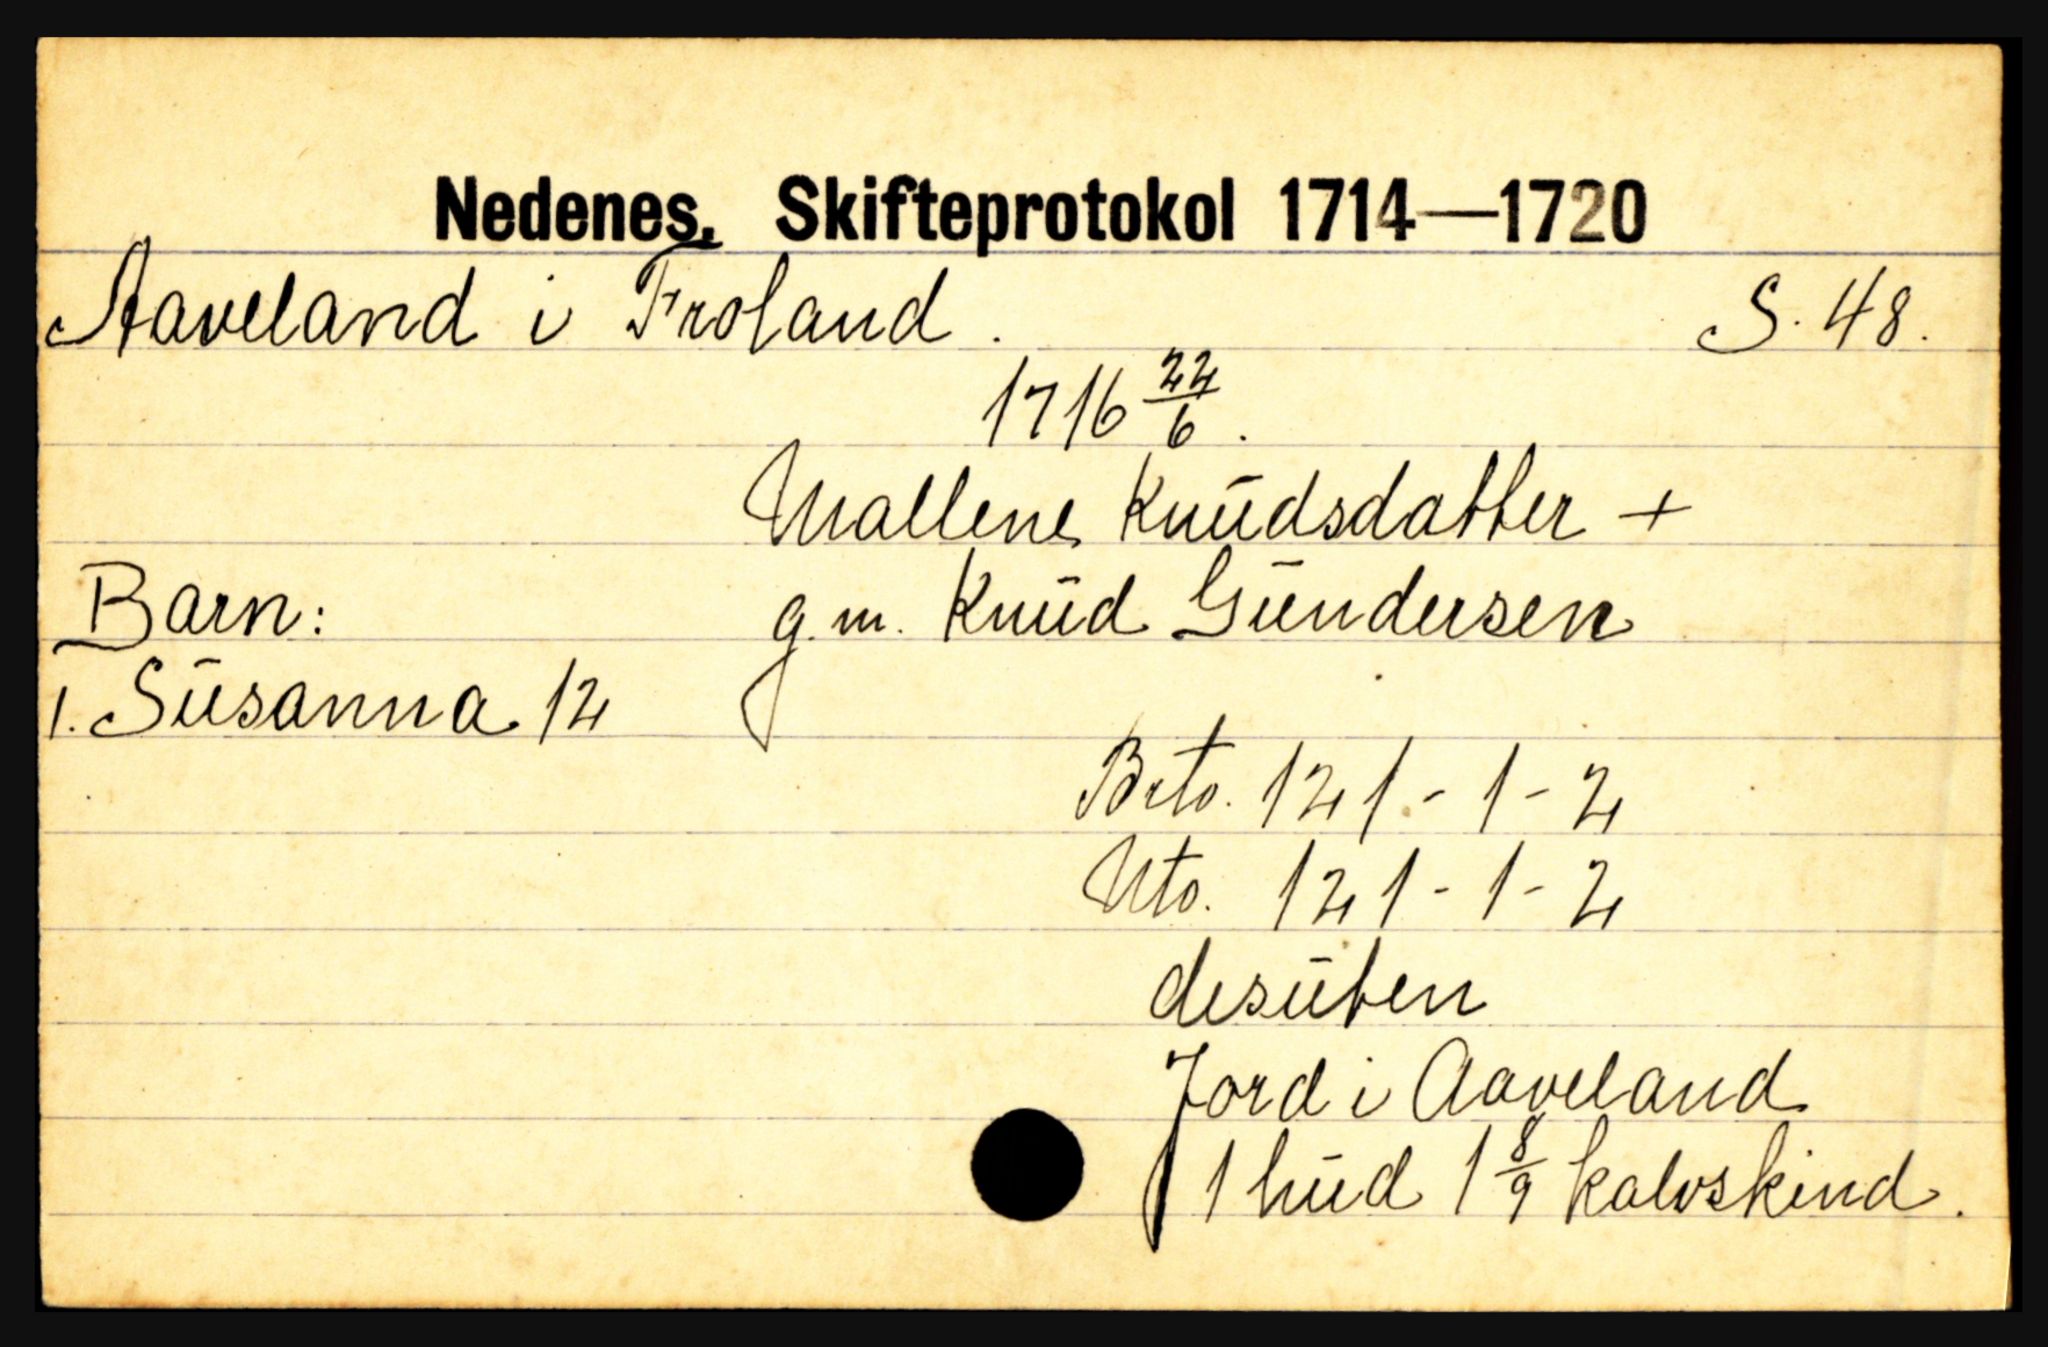 Nedenes. Skifteprotokol 1714—1720
Aaveland i Froland. S. 48.
1716 22/6.
Mallene Knudsdatter +
Barn: g.m. Knud Gundersen
1. Susanna 12
Brto. 121 - 1 - 2
Nto. 121 - 1 - 2
desuten
Jord i Aaveland
1 hud 1 8/9 kalvskind.